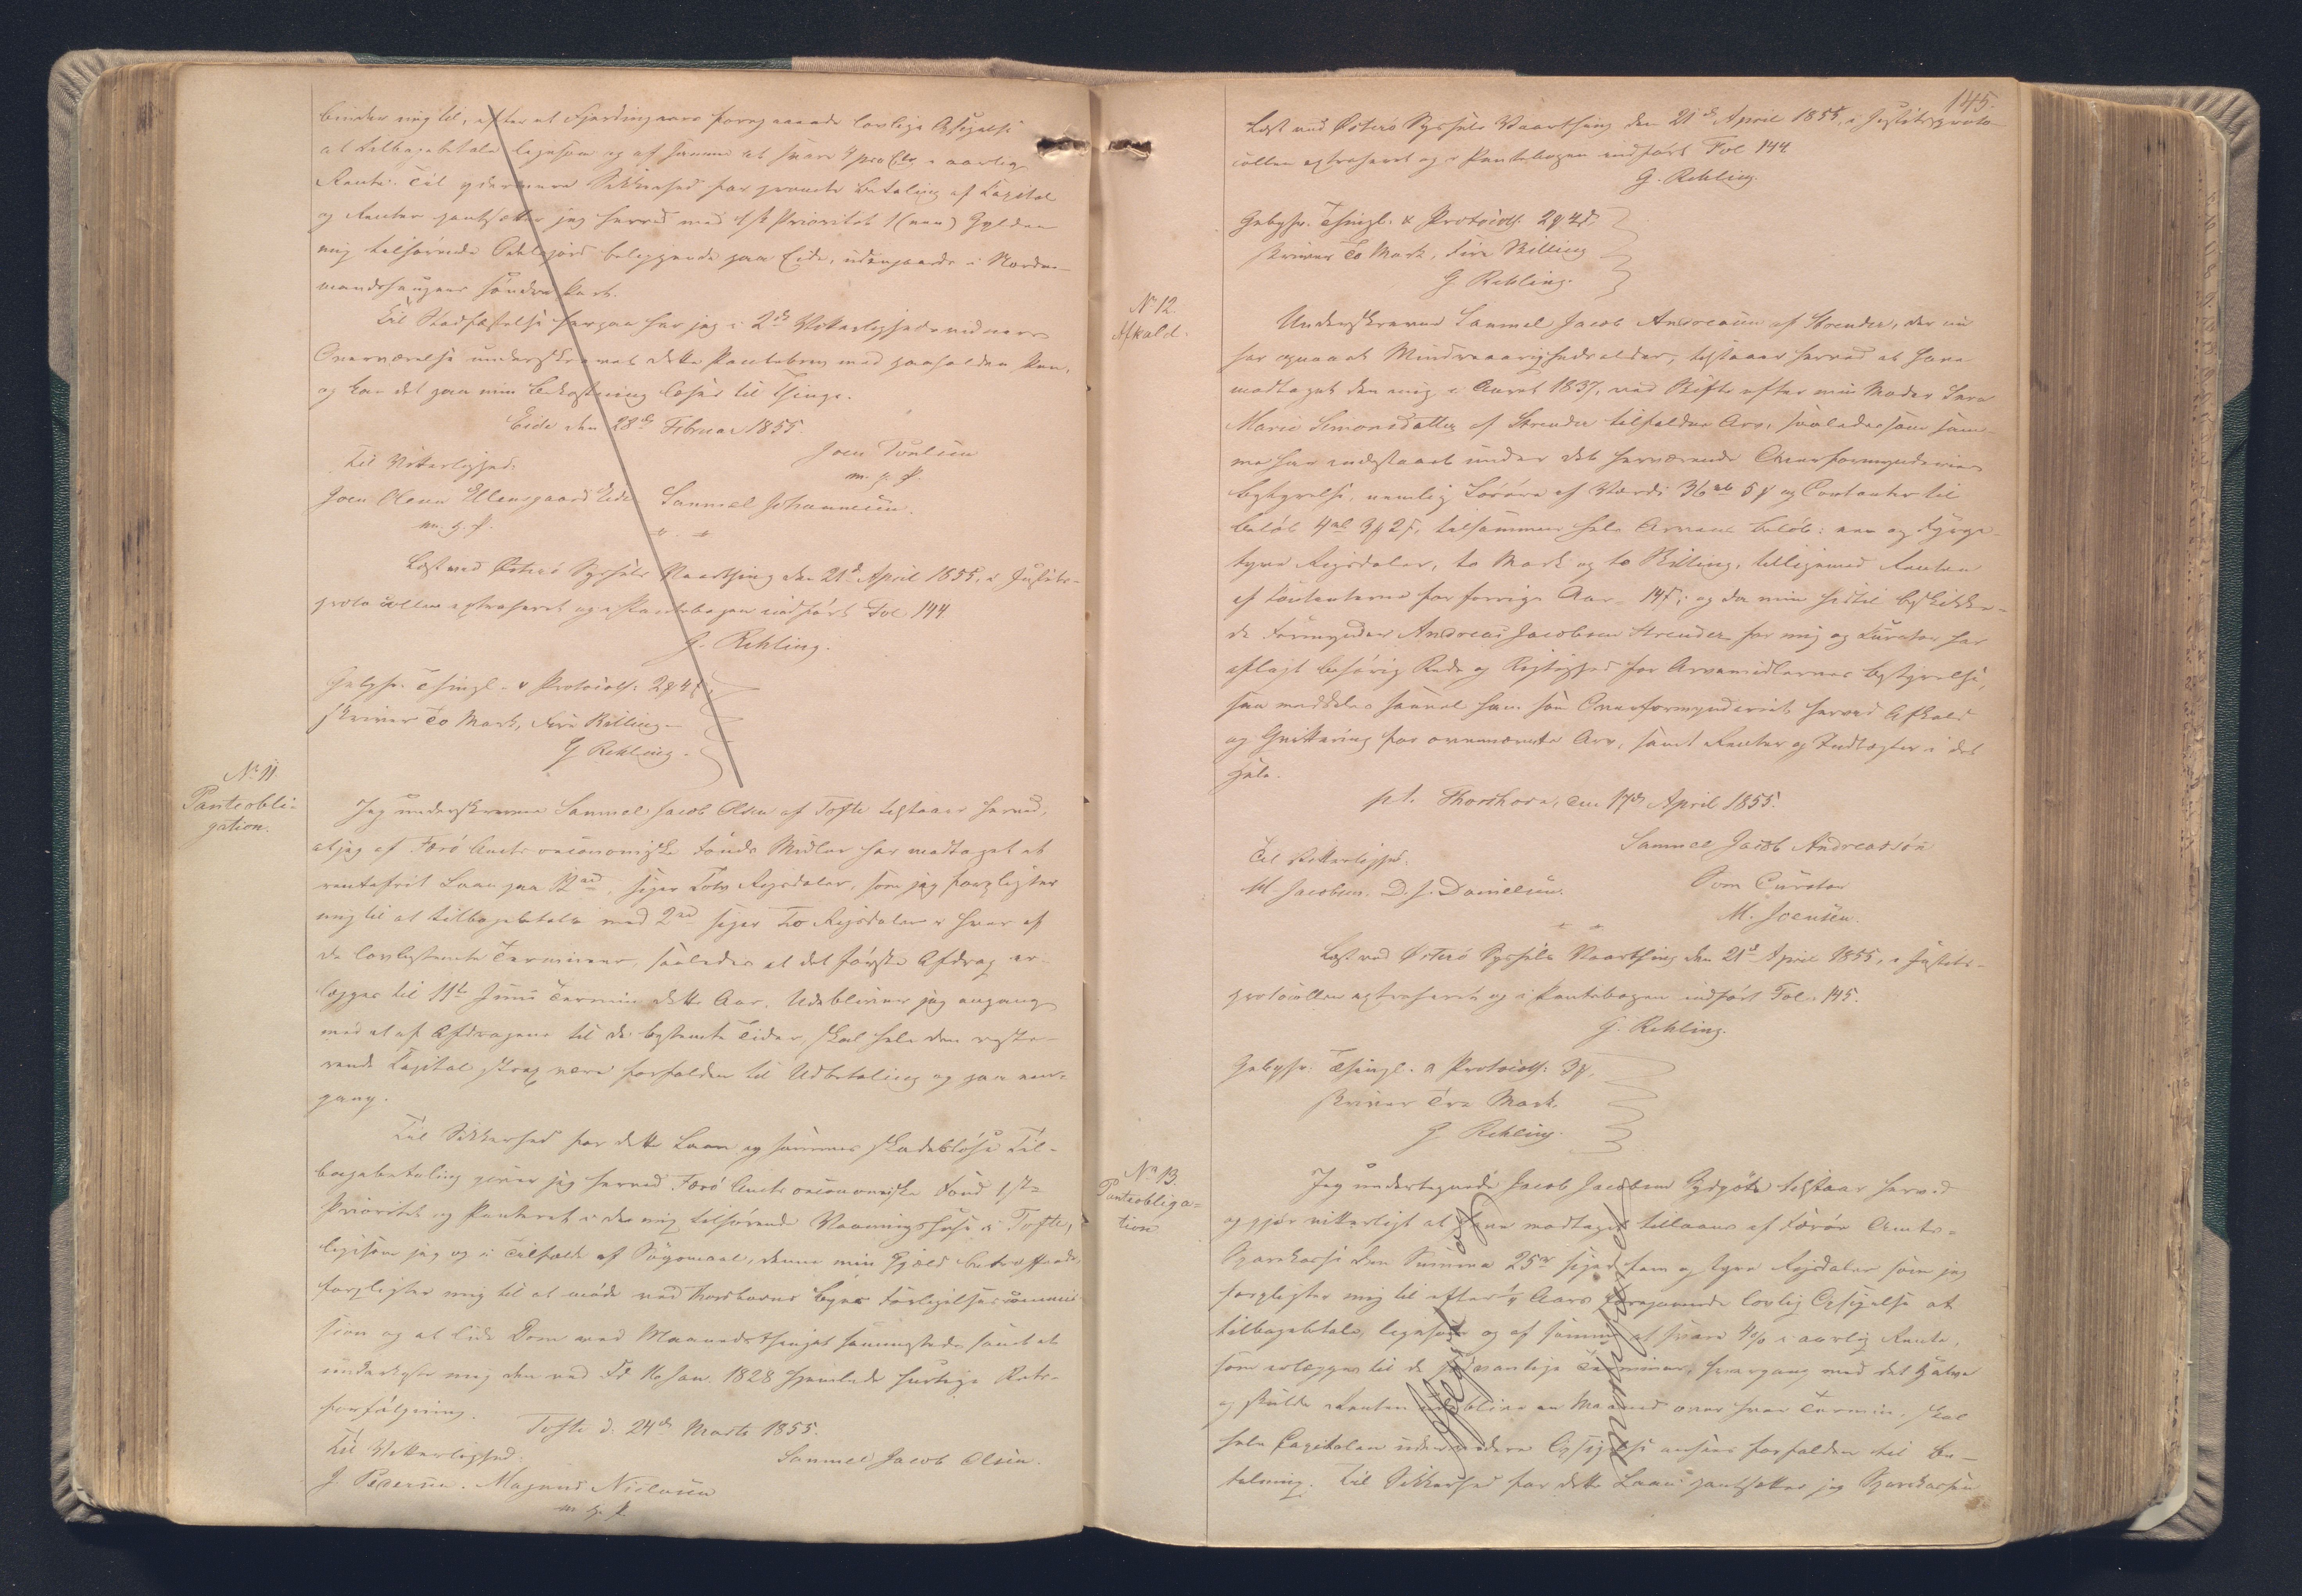 binder mig til, efter et Fjerdingaars foregaaende lovlige Opsigelse
at tilbagebetale ligesom og af samme at svare 4 pro Cto i aarlig
Rente. Til ydermere Sikkerhed for prompte Betaling af Capital
og Renter pantsætter jeg herved med 1ste Prioritet 1 (een) Gylden
mig tilhørende Odelsjord beliggende paa Eide, udengaards i Nordre-
mandshaugens søndre Part.
Til Stadfæstelse herpaa har jeg i 2de Vitterlighedsvidners
Overværelse underskrevet dette Pantebrev med paaholden Pen,
og kan det paa min Bekostning læses til Thinge.
Eide den 28de Februar 1855.
Joen Poulsen
m. p. P.
Til Vitterlighed:
Joen Olsen Ellensgaard Eide Samuel Johannesen.
m. p. P.
Læst ved Østerø Syssels Vaarthing den 21de April 1855, i Justits-
protocollen extraheret og i Pantebogen indført Fol 144
G. Rehling.
Gebyhr. Thingl. & Protocoll: 2 ℳ 4 ß,
skriver To Mark, Fire Skilling
G Rehling.
No 11.
Panteobli-
gation.
Jeg underskrevne Samuel Jacob Olsen af Tofte tilstaaer herved,
at jeg af Færø Amts oeconomiske Fonds Midler har modtaget et
rentefrit Laan paa 12 rd, siger Tolv Rigsdaler, som jeg forpligter
mig til at tilbagebetale med 2 rd siger To Rigsdaler i hver af
de lovbestemte Terminer, saaledes at det første Afdrag er-
lægges til 11te Juni Termin dette Aar. Udebliver jeg engang
med et af Afdragene til de bestemte Tider, skal hele den reste-
rende Capital strax være forfalden til Udbetaling og paa een-
gang.
Til Sikkerhed for dette Laan og sammes skadesløse Til-
bagebetaling giver jeg herved Færø Amts oeconomiske Fond 1ste
Prioritet og Panteret i den mig tilhørende Vaaningshuus i Tofte,
ligesom jeg og i Tilfælde af Søgsmaal, denne min Gjæld betræffende,
forpligter mig til at møde ved Thorshavns Byes Forligelsescommis
sion og at lide Dom ved Maanedsthinget sammesteds samt at
underkaste mig den ved Fr 16 Jan. 1828 hjemlede hurtige Rets-
forfølgning.
Tofte d. 24de Marts 1855.
Til Vitterlighed:
Samuel Jacob Olsen.
J. Petersen. Magnus Niclasen
m. p. P.
145.
Læst ved Østerø Syssels Vaarthing den 21de April 1855, i Justitsproto-
collen extraheret og i Pantebogen indført Fol 144
G. Rehling.
Gebyhr. Thingl. & Protocoll. 2 ℳ 4 ß,
skriver To Mark, Fire Skilling
G Rehling.
No 12.
Afkald.
Underskrevne Samuel Jacob Andreasen af Strender, der nu
har opnaaet Mindreaarighedsalder, tilstaaer herved at have
modtaget den mig i Aaret 1837, ved Skifte efter min Moder Sara
Marie Simonsdatter af Strender tilfaldne Arv, saaledes som sam-
me har indestaaet under det herværende Overformynderies
Bestyrelse, nemlig Løsøre af Værdi 36 rd 5 ℳ og Contanter til
Beløb 4 rd 3 ℳ 2 ß, tilsammen hele Arvens Beløb: een og fyrge-
tyve Rigsdaler, to Mark og to Skilling, tilligemed Renten
af Contanterne for forrige Aar 14 ß; og da min hidtil beskikke-
de Formynder Andreas Jacobsen Strender for mig og Curator har
aflagt behørig Rede og Rigtighed for Arvemidlernes Bestyrelse,
saa meddeles saavel ham som Overformynderiet herved Afkald
og Qvittering for ovennævnte Arv, samt Renter og Indtægter i det
Hele.
pt. Thorshavn, den 17de April 1855.
Samuel Jacob Andreassøn
Til Vitterlighed:
Som Curator
M. Jacobsen. D. J. Danielsen.
M. Joensen.
Læst ved Østerø Syssels Vaarthing den 21de April 1855, i Justits-
protocollen extraheret og i Pantebogen indført Fol. 145.
G. Rehling.
Gebyhr. Thingl. & Protocoll: 3 ℳ,
skriver Tre Mark.
G Rehling.
No 13.
Panteobliga-
tion
Jeg undertegnede Jacob Jacobsen Sydgøte tilstaar herved
og gjør vitterligt at have modtaget tillaans af Færøe Amts
Sparekasse den Summa 25 rd siger fem og tyve Rigsdaler som jeg
forpligter mig til efter 1/4 Aars foregaaende lovlig Opsigelse at
tilbagebetale, ligesom og af samme at svare 4 % i aarlig Rente,
som erlægges til de sædvanlige Terminer, hvergang med det halve
og skulde Renten udeblive en Maaned over hver Termin, skal
hele Capitalen uden videre Opsigelse ansees forfalden til Be-
talning. Til Sikkerhed for dette Laan pantsætter jeg Sparekassen